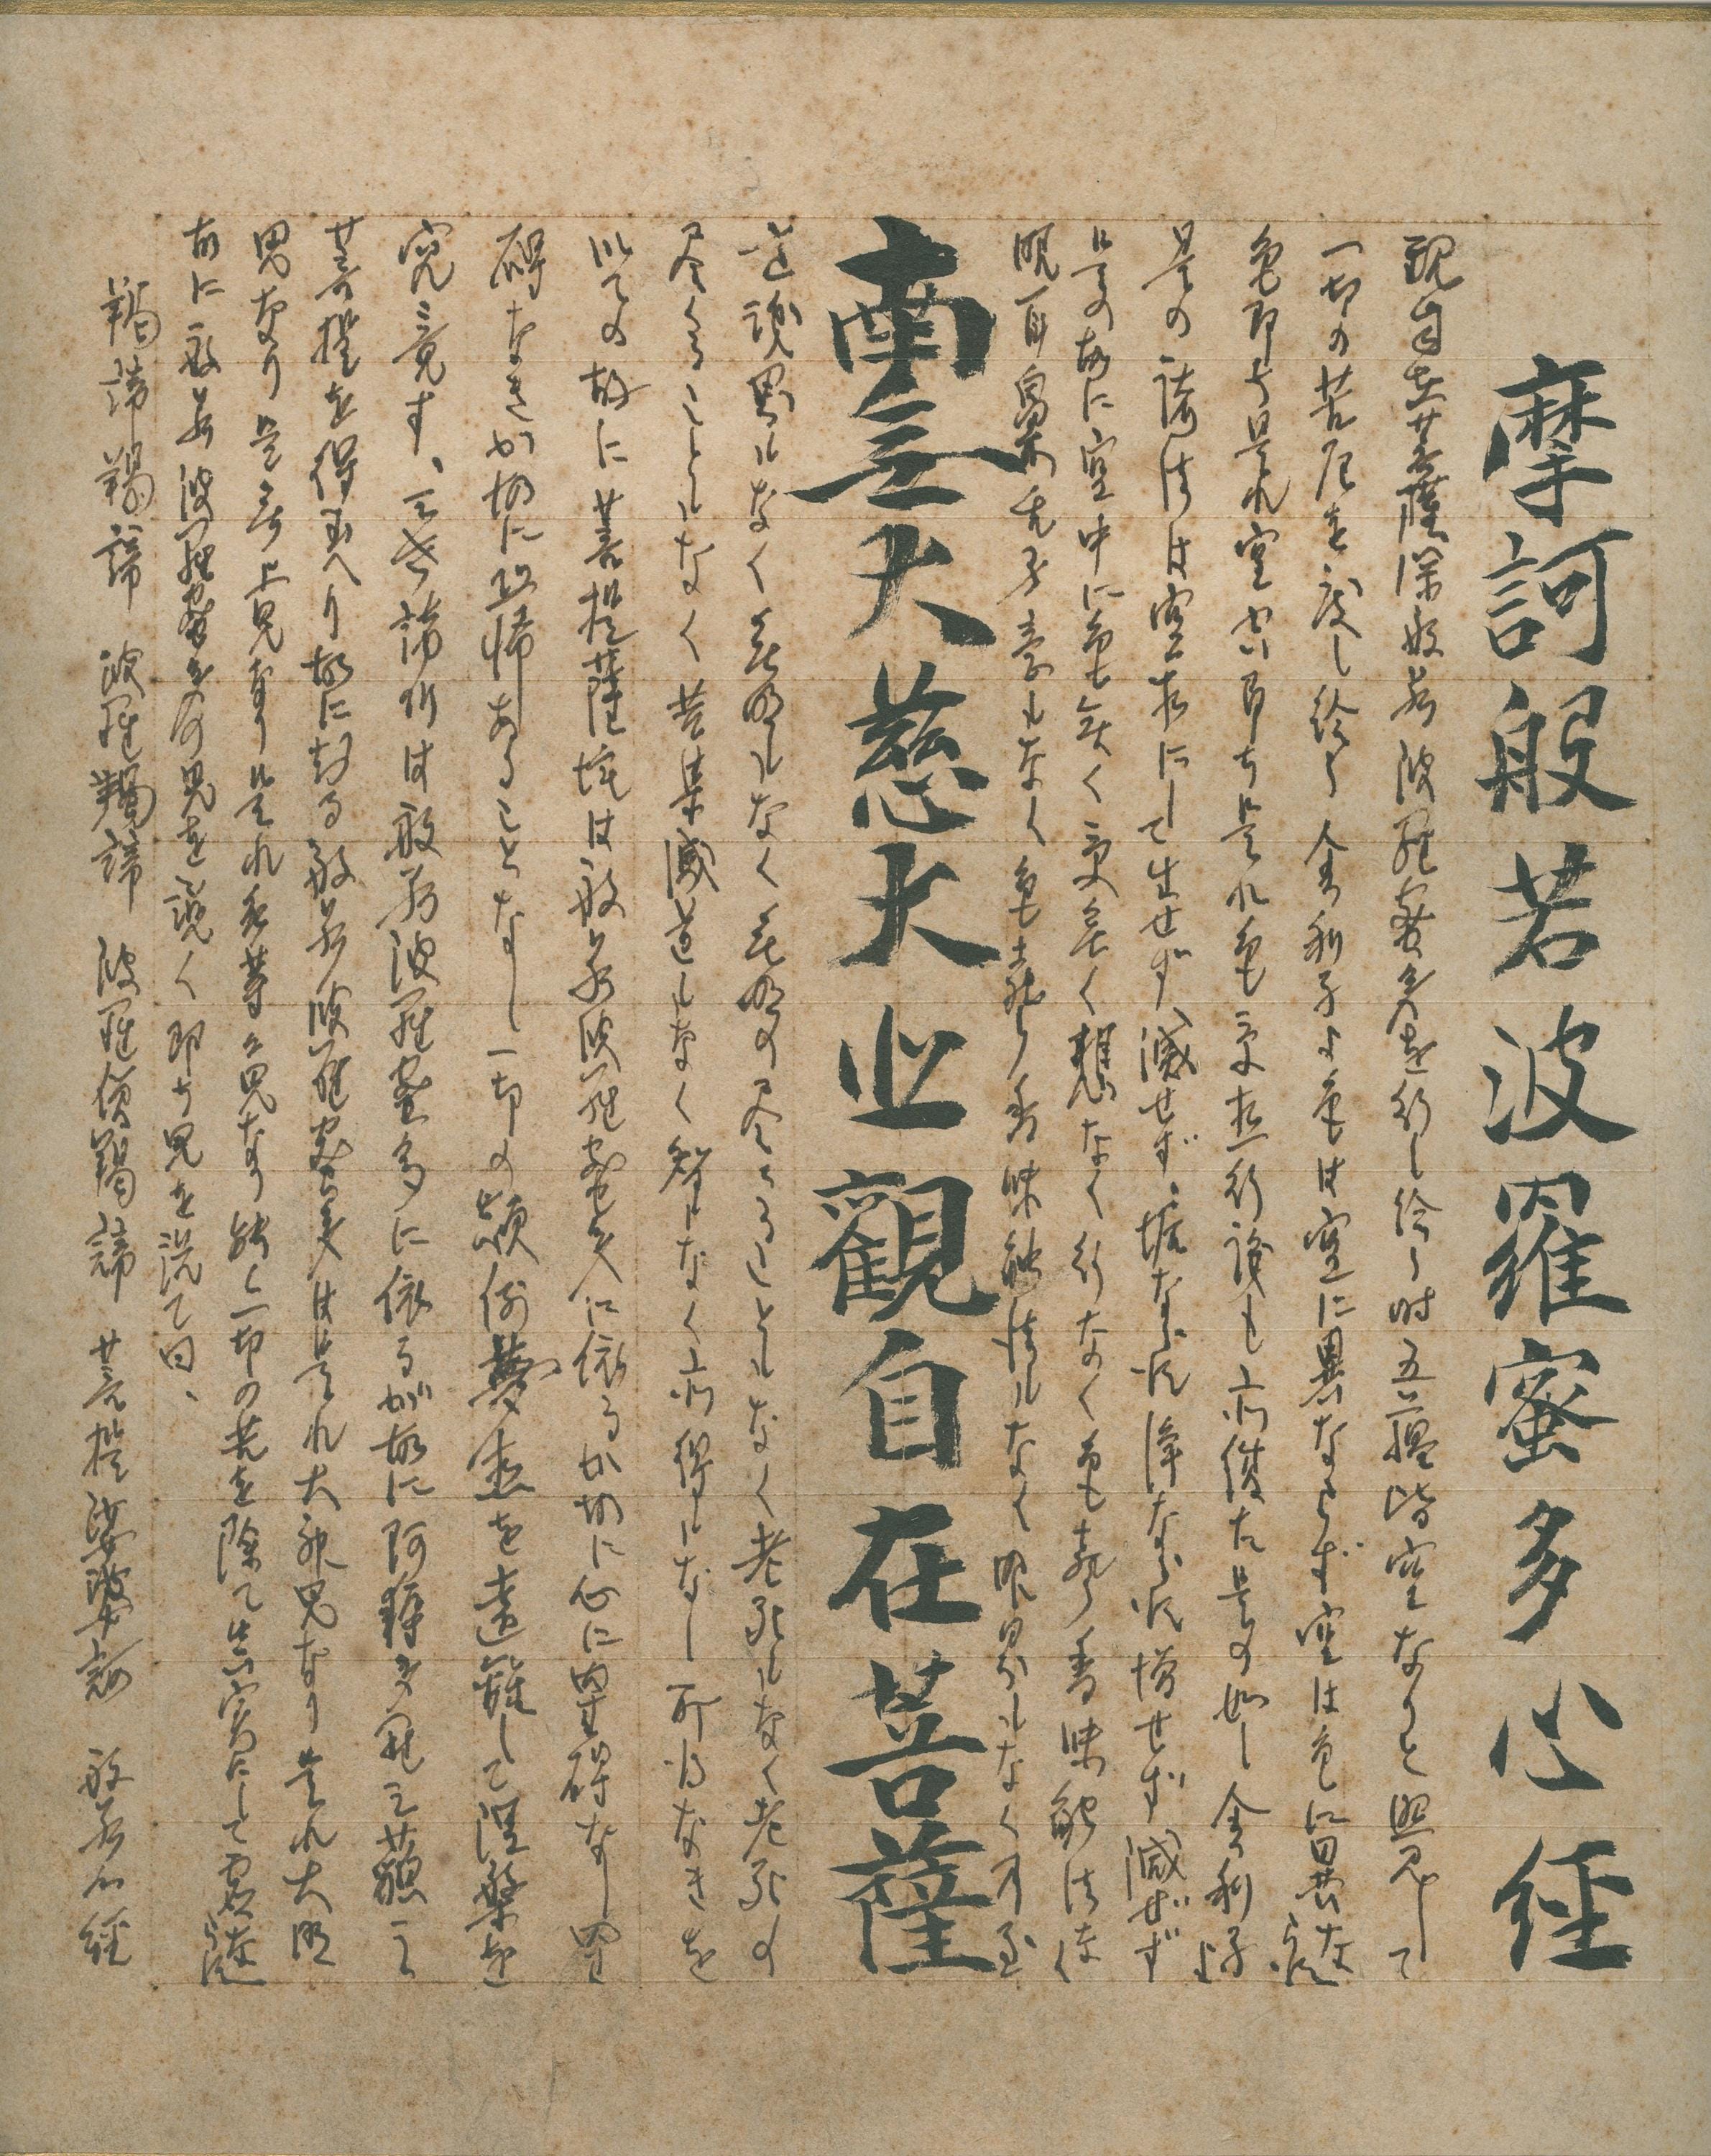 摩訶般若波羅蜜多心経
観自在菩薩深般若波羅蜜多を行し給ふ時五蘊皆空なりと照見して
一切の苦厄を度し給ふ舎利子よ色は空に異ならず空は色に異ならず
色即ち是れ空空即ち是れ色受想行識も亦復た是の如し舎利子よ
是の諸法は空相にして生せず、滅せず、垢ならず浄ならず増せず減ぜず
是の故に空中に色も無く受も無く想なく行なく色も声香味触法なく
眼耳鼻舌身意もなく色声香味触法もなく眼界もなく乃至
意識界もなく無明もなく無明の尽くることもなく老死もなく老死の
尽くることもなく苦集滅道もなく智もなく亦得もなし所得なきを
以ての故に菩提薩埵は般若波羅蜜多に依るが故に心に罣碍なし罣
碍なきが故に恐怖あることなし一切の顛倒夢想を遠離して涅槃を
究竟す、三世諸仏は般若波羅蜜多に依るが故に阿耨多羅三藐三
菩提を得玉へり故に知る般若波羅蜜多は是れ大神咒なり是れ大明
咒なり是無上咒なり是れ無等々咒なり能く一切の苦を除て真実にして虚ならず
故に般若波羅蜜多の咒を説く即ち咒を説て曰、
羯諦羯諦 波羅羯諦 波羅僧羯諦 菩提娑婆訶 般若心経
南無大慈大悲観自在菩薩